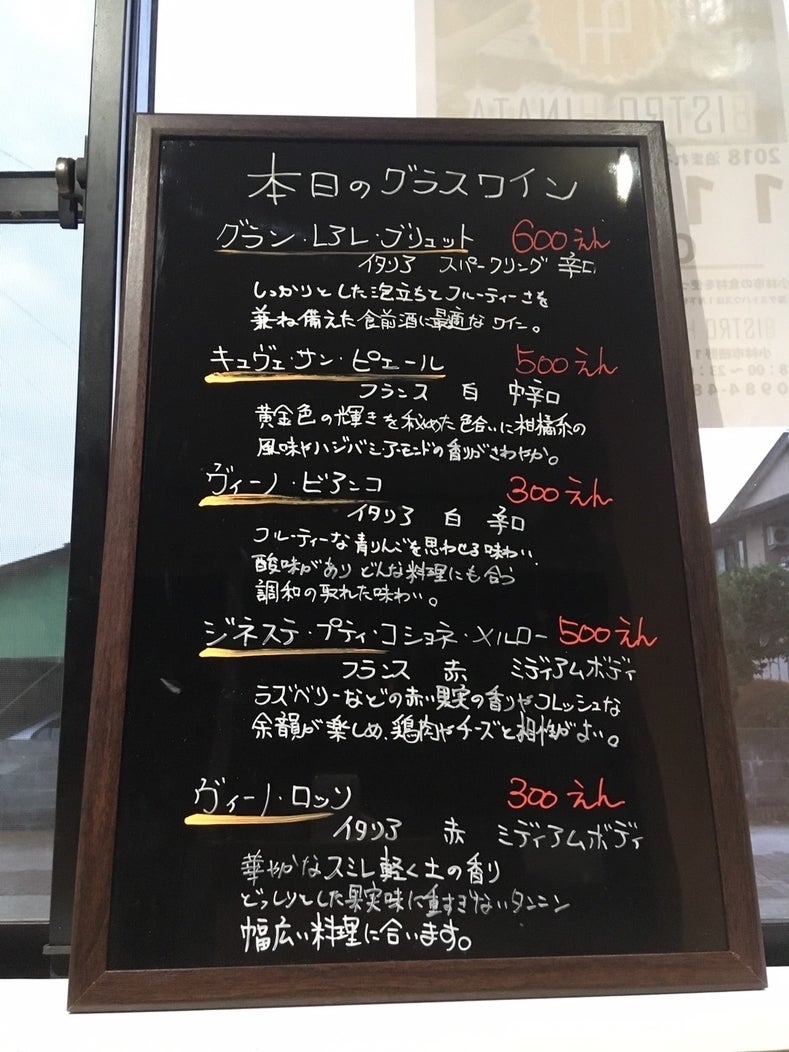 本日のグラスワイン
グラン・レアレ・ブリュット 600えん
イタリア スパークリング 辛口
しっかりとした泡立ちとフルーティーさを
兼ね備えた食前酒に最適なワイン。
キュヴェ・サン・ピエール 500えん
フランス 白 中辛口
黄金色の輝きを秘めた色合いに柑橘系の
風味やハジバシアーモンドの香りがさわやか。
ヴィーノ・ビアンコ 300えん
イタリア 白 辛口
フルーティーな青りんごを思わせる味わい、
酸味がありどんな料理にも合う
調和の取れた味わい。
ジネステ・プティ・コショネ・メルロー 500えん
フランス 赤 ミディアムボディ
ラズベリーなどの赤い果実の香りやフレッシュな
余韻が楽しめ、鶏肉やチーズと相性がよい。
ヴィーノ・ロッソ 300えん
イタリア 赤 ミディアムボディ
華やかなスミレ軽く土の香り
どっしりとした果実味に重すぎないタンニン
幅広い料理に合います。
BISTRO HINATA
2018